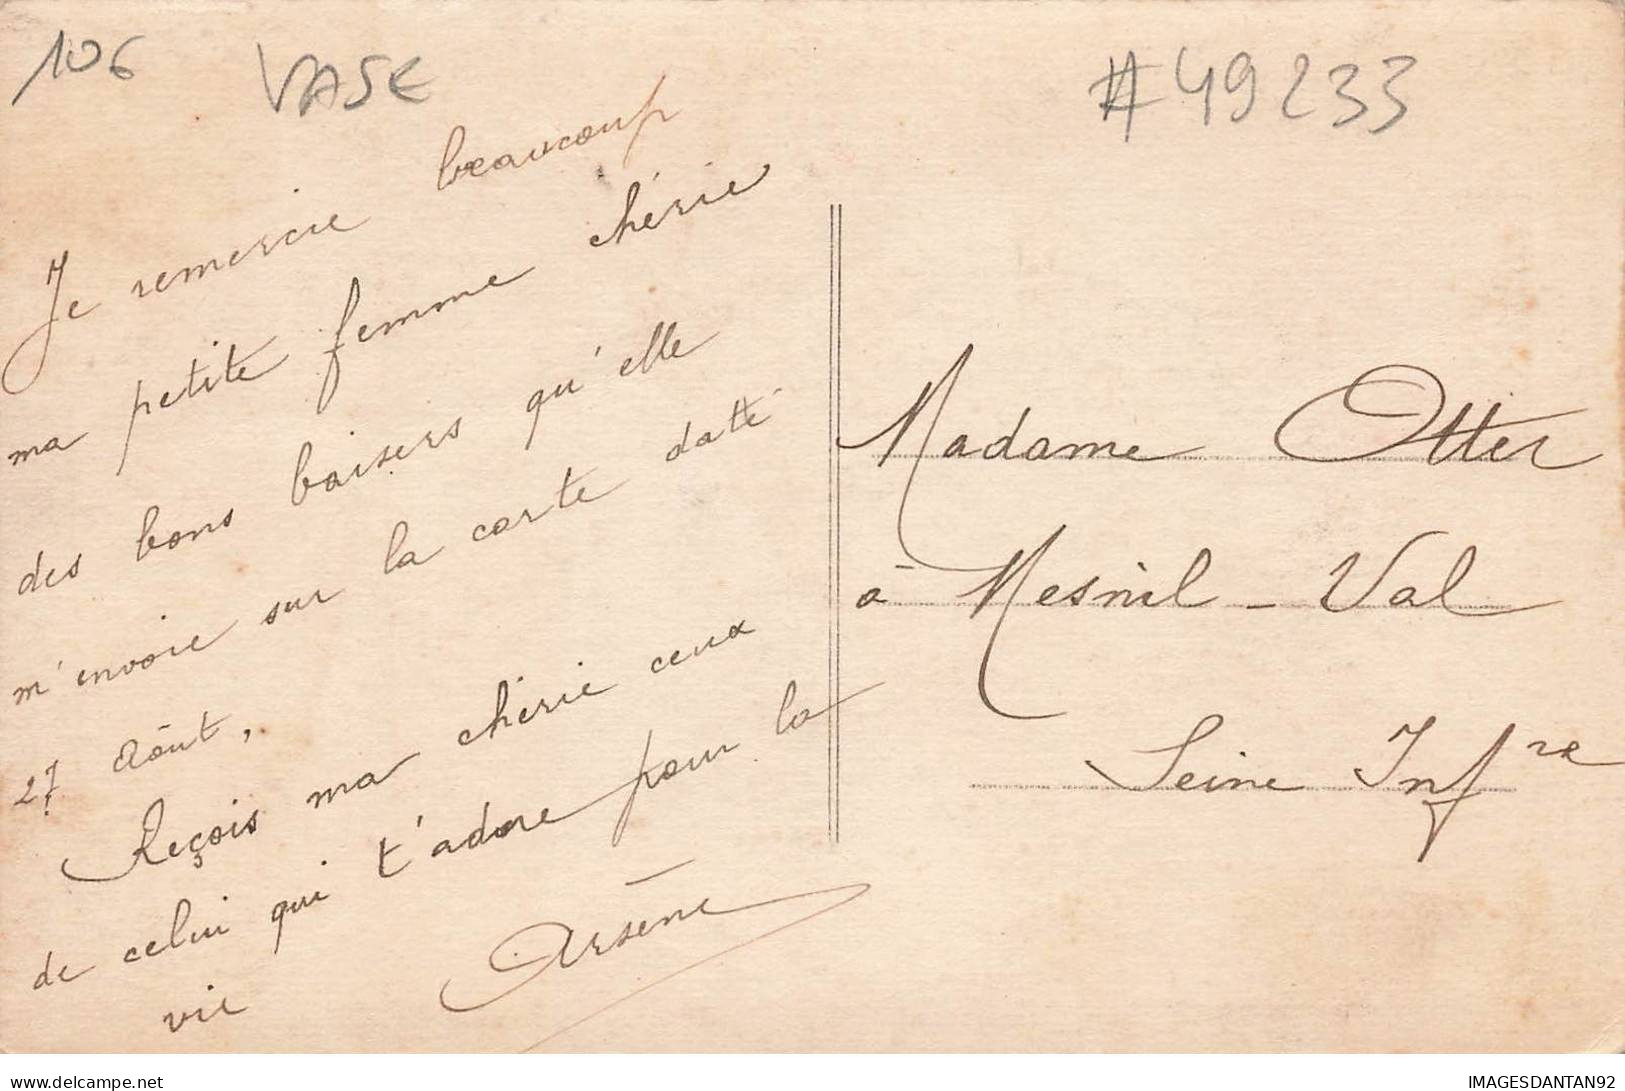 106 VASE #49233
Je remercie beaucoup
ma petite femme chérie
des bons baisers qu'elle
m'envoie sur la carte datté
27 Aôut,
Reçois ma chérie ceux
de celui qui t'adore pour la
vie Arsène
Madame Otter
à Mesnil-Val
Seine Infre
www.delcampe.net
IMAGESDANTAN92